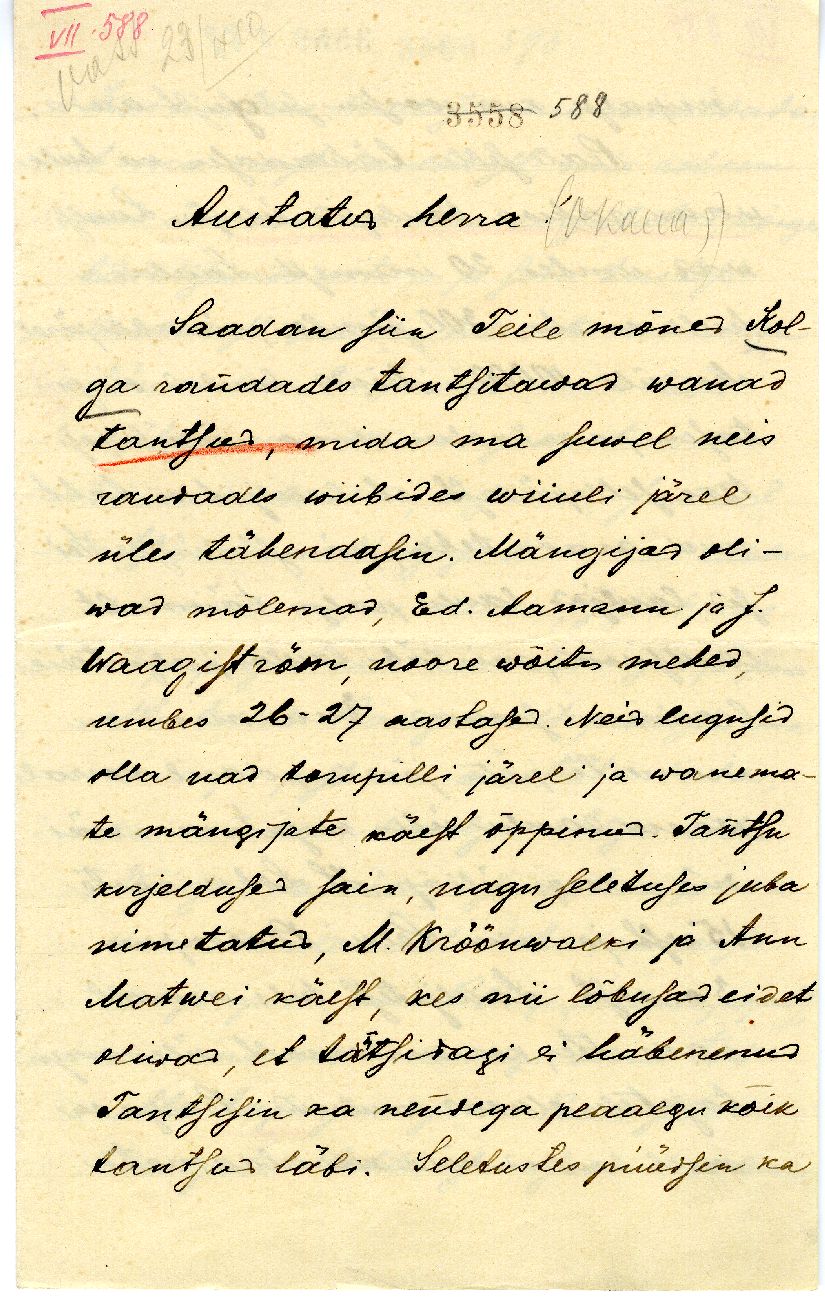 VII 588
23/X 10
3558 588
Austatud herra! (O Kallas)
Saadan siin Teile mõned Kol-
ga randades tantsitawad wanad
tantsud, mida ma suwel neis
randades wiibides wiiuli järel
üles tähendasin. Mängijad oli-
wad mõlemad, Ed. Aamann ja J.
Waagiström, noore wõitu mehed,
umbes 26-27 aastased. Neid lugusid
olla nad torupilli järel ja wanema-
te mängijate käest õppinud. Tantsu
kirjeldused sain, nagu seletuses juba
nimetatud, M. Kröönwalki ja Ann
Matwei käest, kes nii lõbusad eidet
oliwad, et tätsidagi ei häbenenud
Tantsisin ka nendega peaaegu kõik
tantsud läbi. Seletustes püüdsin ka